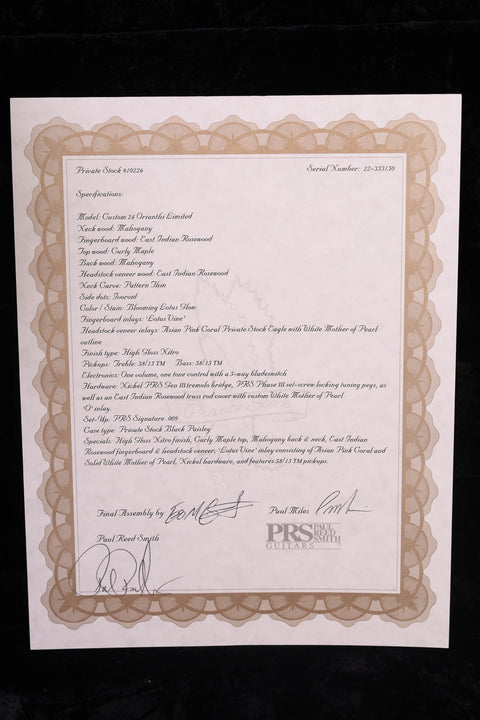 Private Stock #10226 Serial Number: 22-353150
Specifications:
Model: Custom 24 Orianthi Limited
Neck wood: Mahogany
Fingerboard wood: East Indian Rosewood
Top wood: Curly Maple
Back wood: Mahogany
Headstock veneer wood: East Indian Rosewood
Neck Carve: Pattern Thin
Side dots: Ivoroid
Color / Stain: Blooming Lotus Glow
Fingerboard inlays: 'Lotus Vine'
Headstock veneer inlays: Asian Pink Coral Private Stock Eagle with White Mother of Pearl
outline
Finish type: High Gloss Nitro
Pickups: Treble: 58/15 TM Bass: 58/15 TM
Electronics: One volume, one tone control with a 5-way bladeswitch
Hardware: Nickel PRS Gen III tremolo bridge, PRS Phase III set-screw locking tuning pegs, as
well as an East Indian Rosewood truss rod cover with custom White Mother of Pearl
'O' inlay.
Set-Up: PRS Signature .009
Case type: Private Stock Black Paisley
Specials: High Gloss Nitro finish, Curly Maple top, Mahogany back & neck, East Indian
Rosewood fingerboard & headstock veneer, 'Lotus Vine' inlay consisting of Asian Pink Coral and
Solid White Mother of Pearl, Nickel hardware, and features 58/15 TM pickups.
Private Stock
Final Assembly by Paul Miles
Paul Reed Smith
PRS PAUL REED SMITH
GUITARS